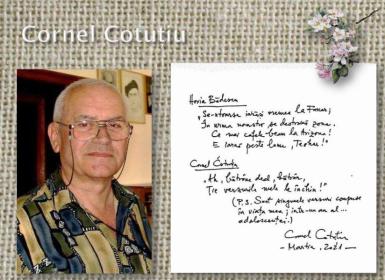 Cornel Cotuțiu
Horia Bădescu
"Se-ntoarse iarăși vremea la Fumur;
În urma noastră se destramă zona.
Ce mai cafele beam la Arizona!
E iarăr peste lume, Teohar!"
Cornel Cotuțiu
"Ah, bătrâne dead, bătrân,
Ție versurile mele le închin!"
(P.S. Sunt singurele versuri compuse
în viața mea; într-un an al...
adolescenței.)
Cornel Cotuțiu
- Martie, 2021 -